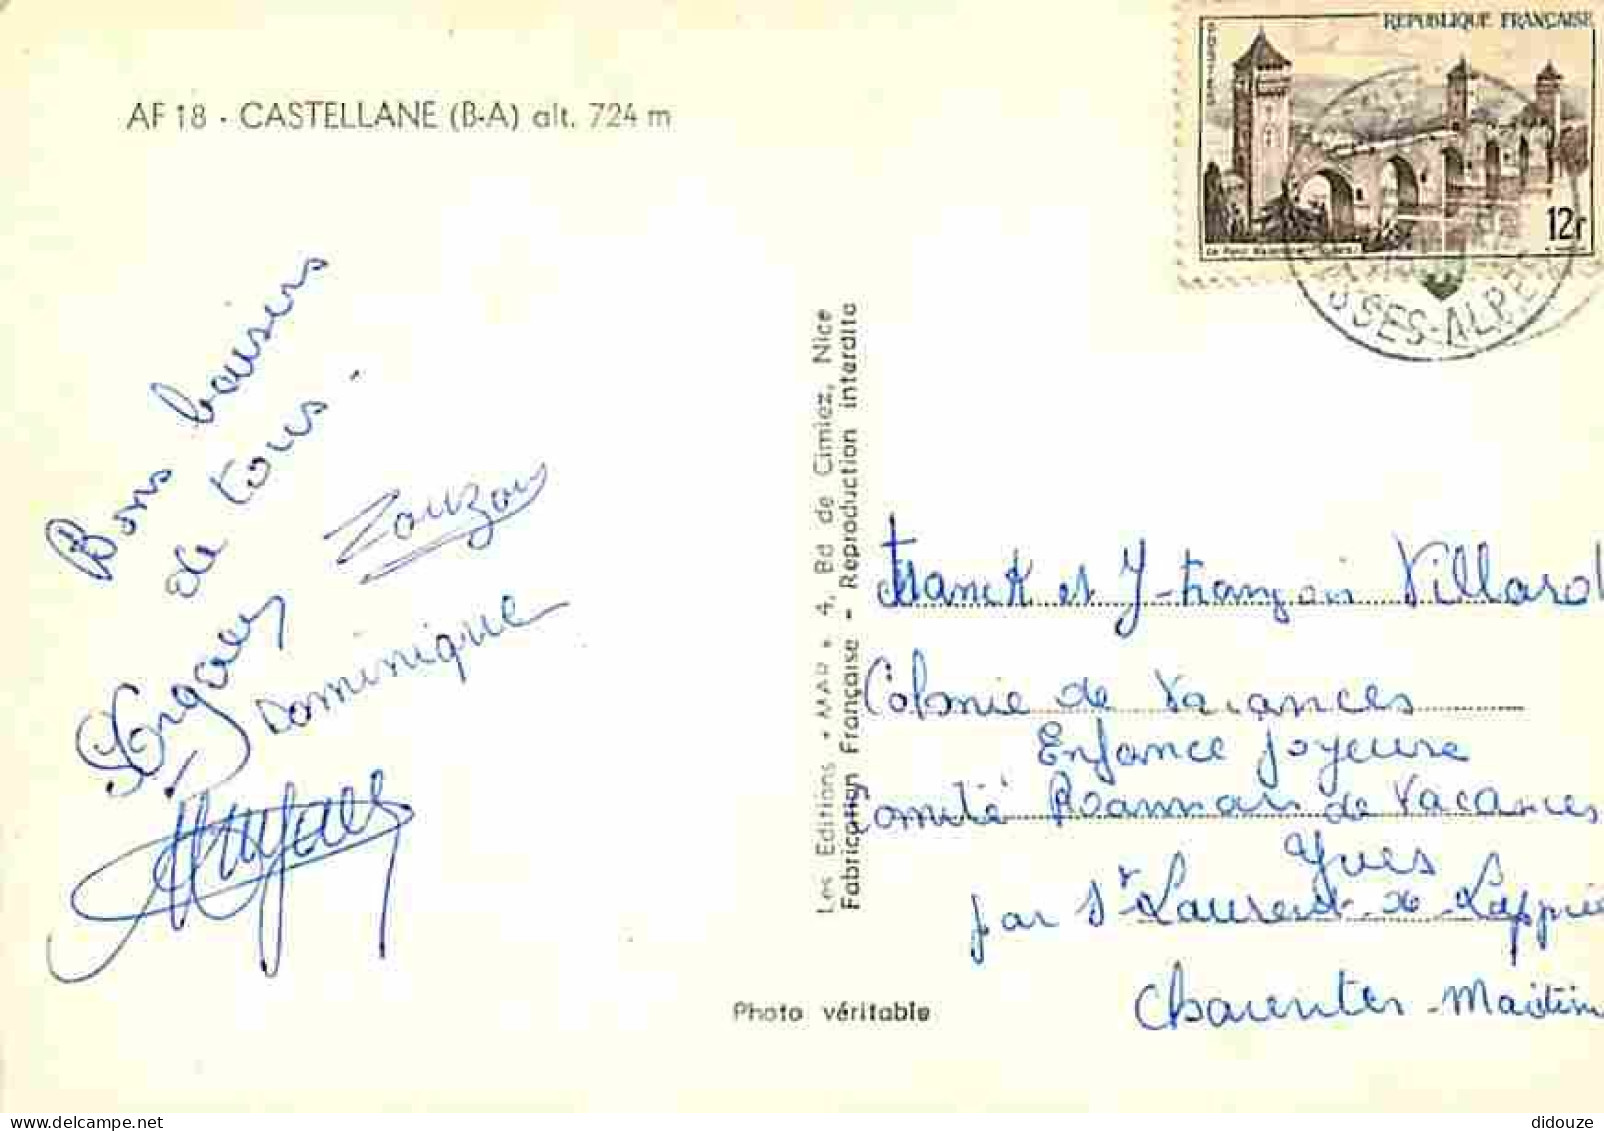 AF 18 - CASTELLANE (B-A) alt. 724 m
REPUBLIQUE FRANÇAISE
12F
SSES-ALPE
Bons baisers
de tous.
Zouzou
Dominique
Les Editions "MAR", 4, Bd de Cimiez, Nice
Fabrication Française - Reproduction interdite
Photo véritable
Franck et J-François Villard
Colonie de Vacances
Enfance Joyeuse
Comité Roannais de Vacances
Yves
par St Laurent-de-La
Charentes-Maritim
didouze